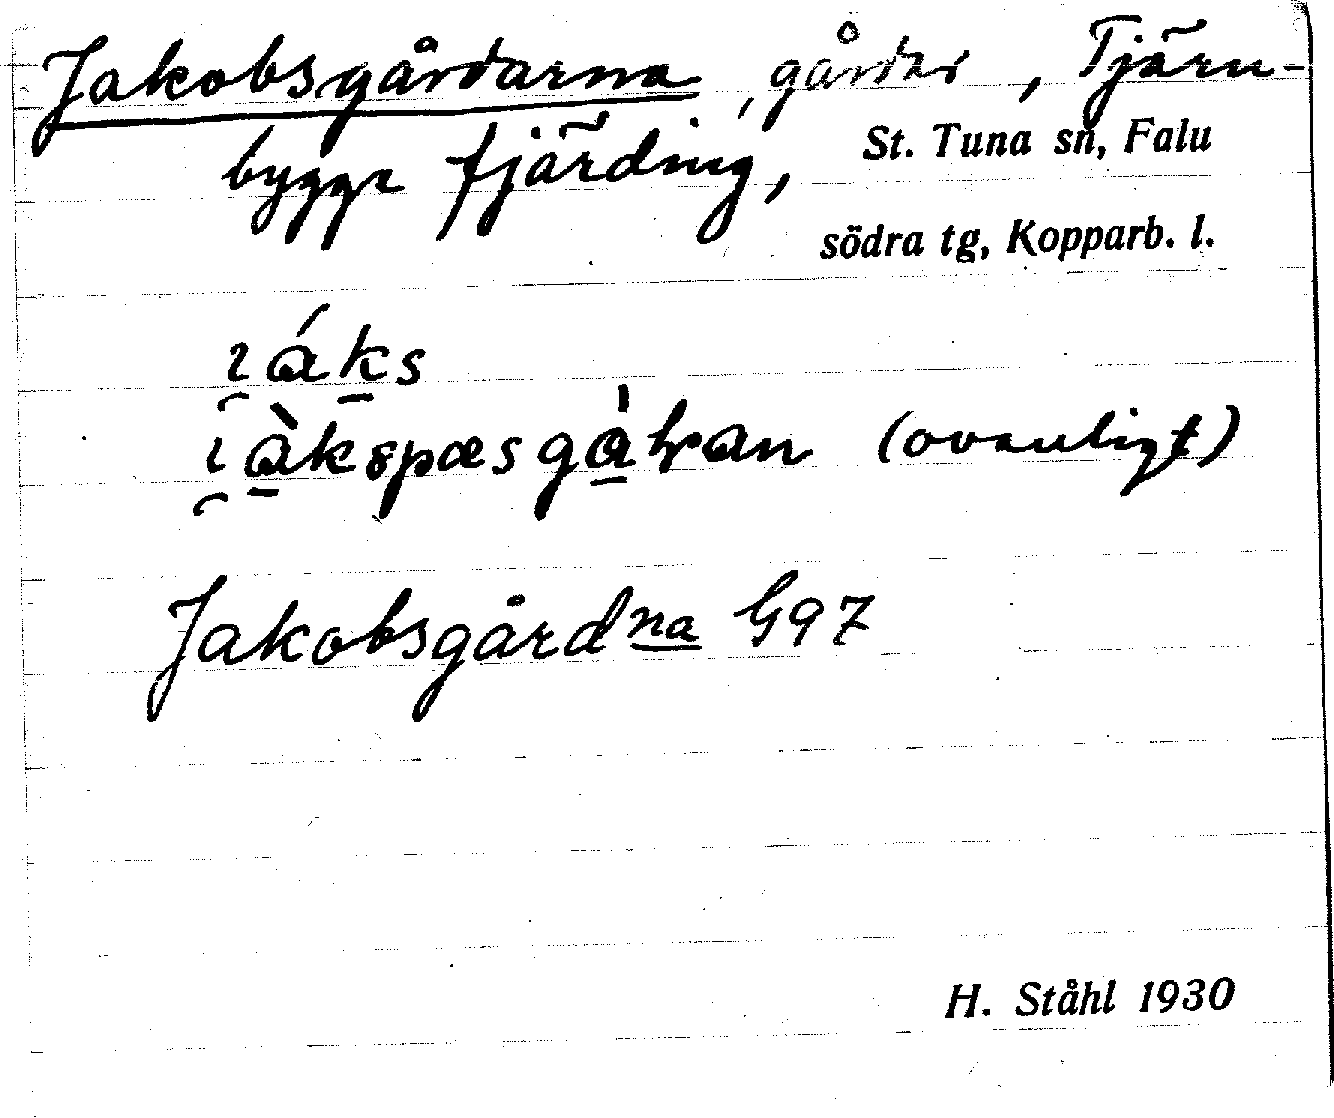 Jakobsgårdarna, gårdar, Tjärn-
bygge fjärding, St. Tuna sn, Falu
södra tg, Kopparb. l.
(ovanligt)
Jakobsgårdna G97
H. Ståhl 1930